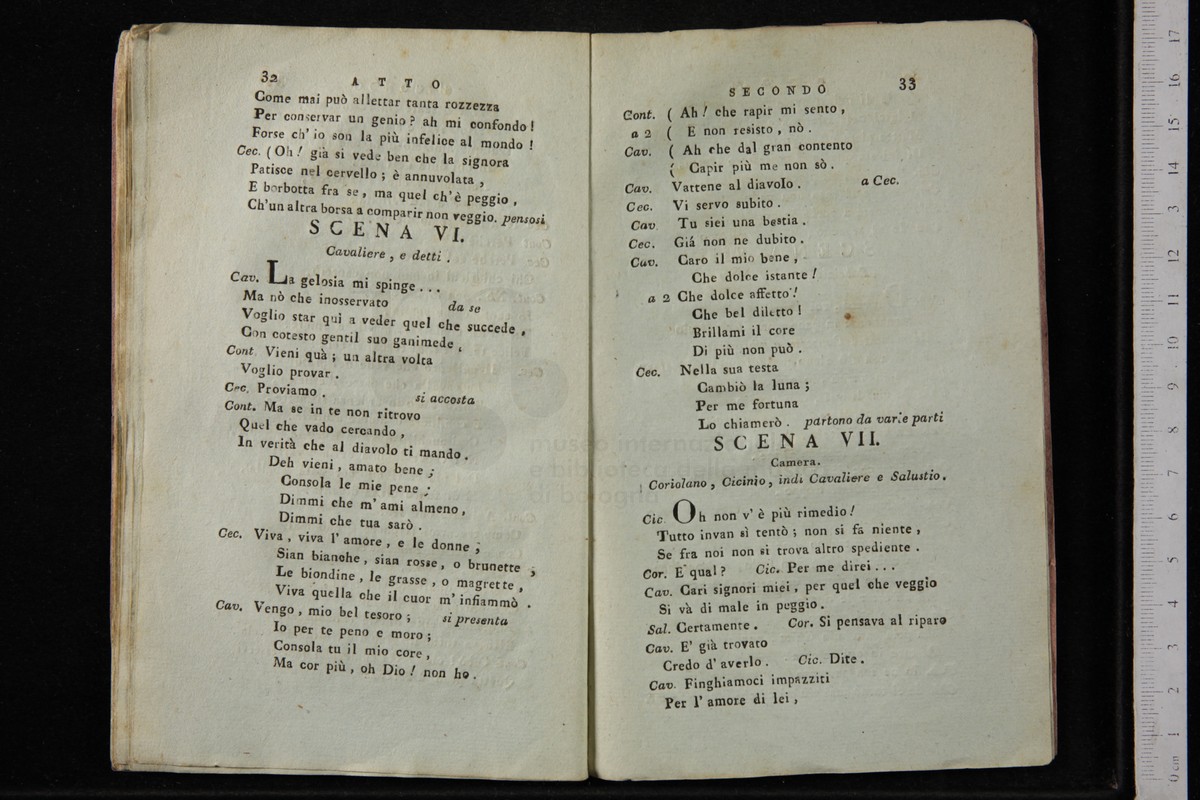 32 ATTO
Come mai può allettar tanta rozzezza
Per conservar un genio? ah mi confondo!
Forse ch' io son la più infelice al mondo!
Cec. (Oh! già si vede ben che la signora
Patisce nel cervello; è annuvolata,
E borbotta fra se, ma quel ch'è peggio,
Ch'un altra borsa a comparir non veggio. pensosi
SCENA VI.
Cavaliere, e detti.
Cav. La gelosia mi spinge...
Ma nò che inosservato da se
Voglio star quì a veder quel che succede,
Con cotesto gentil suo ganimede.
Cont. Vieni quà; un altra volta
Voglio provar.
Cec. Proviamo. si accosta
Cont. Ma se in te non ritrovo
Quel che vado cercando,
In verità che al diavolo ti mando.
Deh vieni, amato bene;
Consola le mie pene;
Dimmi che m' ami almeno,
Dimmi che tua sarò.
Cec. Viva, viva l' amore, e le donne;
Sian bianche, sian rosse, o brunette;
Le biondine, le grasse, o magrette,
Viva quella che il cuor m' infiammò.
Cav. Vengo, mio bel tesoro; si presenta
Io per te peno e moro;
Consola tu il mio core,
Ma cor più, oh Dio! non ho.
SECONDO 33
Cont. ( Ah! che rapir mi sento,
a 2 ( E non resisto, nò.
Cav. ( Ah che dal gran contento
( Capir più me non sò.
Cav. Vattene al diavolo. a Cec.
Cec. Vi servo subito.
Cav Tu siei una bestia.
Cec. Giá non ne dubito.
Cav. Caro il mio bene,
Che dolce istante!
a 2 Che dolce affetto!
Che bel diletto!
Brillami il core
Di più non può.
Cec. Nella sua testa
Cambiò la luna;
Per me fortuna
Lo chiamerò. partono da varie parti
SCENA VII.
Camera.
Coriolano, Cicinio, indi Cavaliere e Salustio.
Cic. Oh non v' è più rimedio!
Tutto invan sì tentò; non si fa niente,
Se fra noi non si trova altro spediente.
Cor. E qual? Cic. Per me direi...
Cav. Cari signori miei, per quel che veggio
Si và di male in peggio.
Sal. Certamente. Cor. Si pensava al riparo
Cav. E' già trovato
Credo d' averlo. Cic. Dite.
Cav. Finghiamoci impazziti
Per l' amore di lei,
museo internaz
e biblioteca della
di bologna
0 cm 1 2 3 4 5 6 7 8 9 10 11 12 13 14 15 16 17